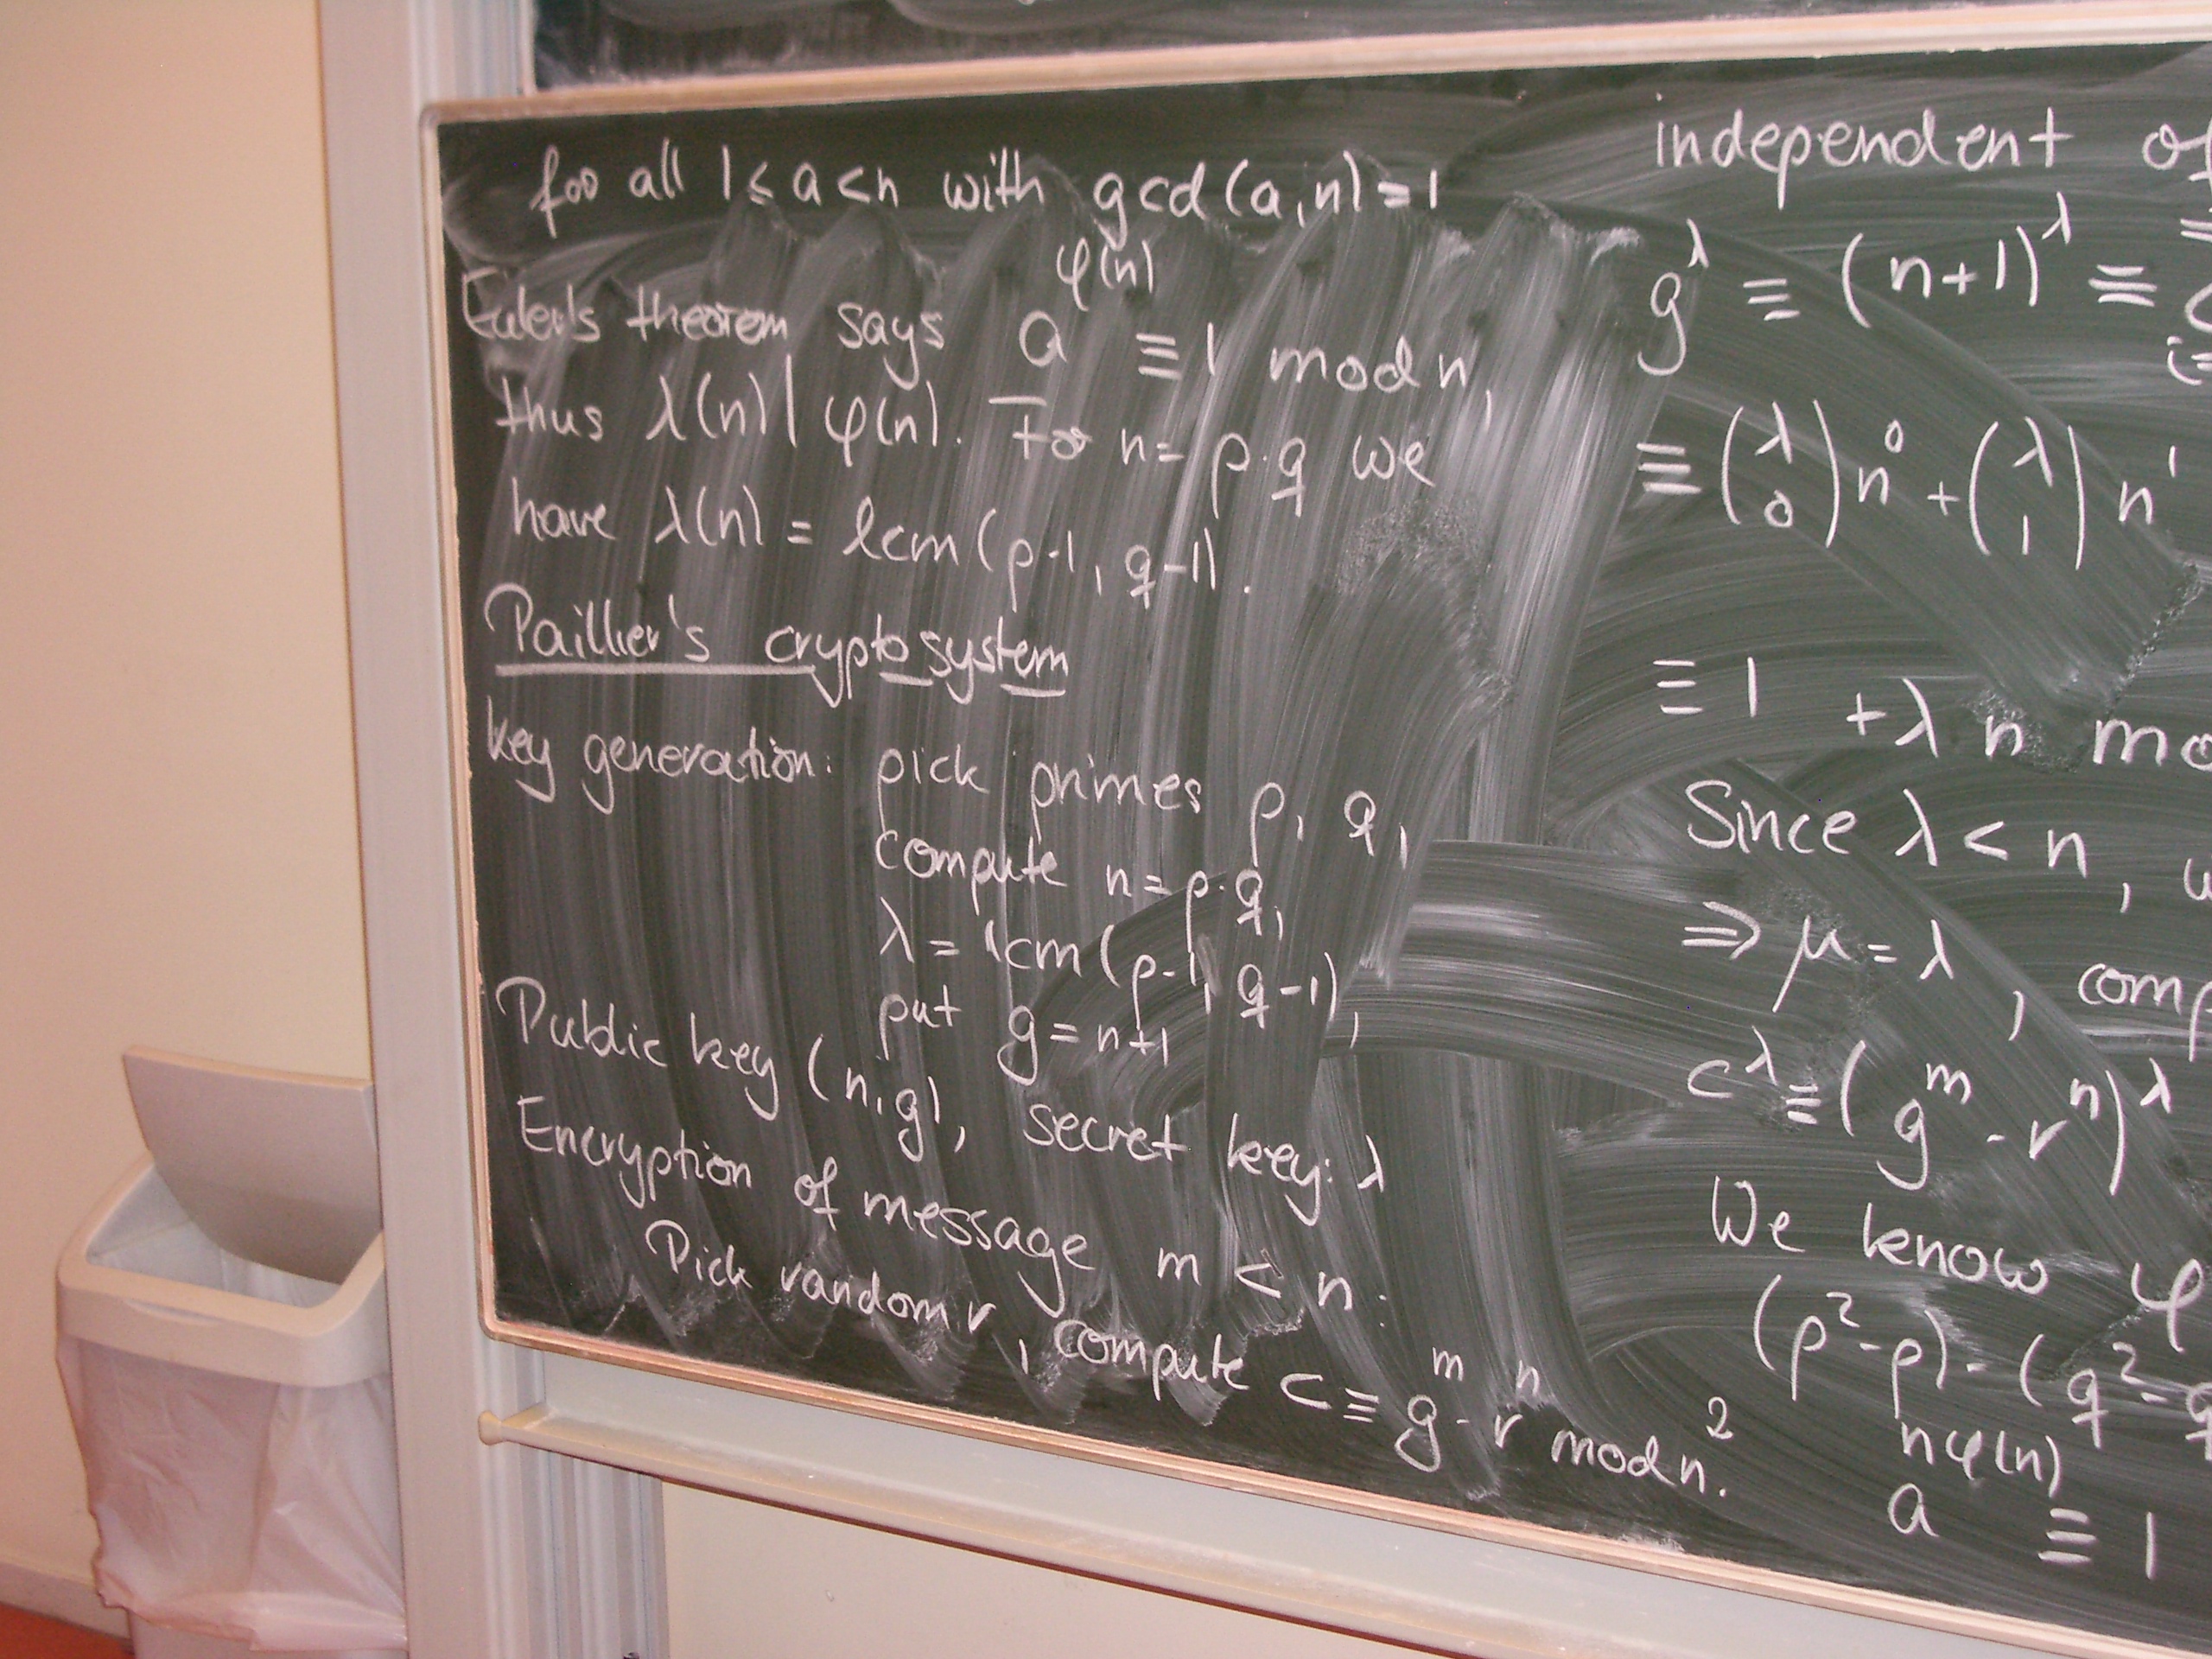 for all 1 ≤ a < n with gcd(a,n) = 1
Euler's theorem says a^φ(n) ≡ 1 mod n,
thus λ(n) | φ(n). For n = p·q we
have λ(n) = lcm(p-1, q-1).
Paillier's cryptosystem
key generation: pick primes p, q,
compute n = p·q,
λ = lcm(p-1, q-1),
put g = n+1
Public key (n,g), secret key: λ
Encryption of message m < n.
Pick random r, compute c ≡ g^m · r^n mod n^2.
independent of
g^λ ≡ (n+1)^λ ≡
≡ (λ 0) n^0 + (λ 1) n^1
≡ 1 + λ n
Since λ < n,
⇒ μ = λ,
c^λ ≡ (g^m · r^n)^λ
We know φ
(p^2-p) · (q^2-
a^nφ(n) ≡ 1